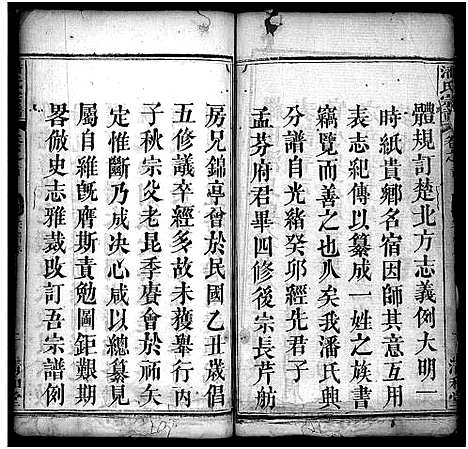 體規訂楚北方志義例大明一
時紙貴鄉名宿因師其意互用
表志紀傳以纂成一姓之族書
竊覽而善之也久矣我潘氏興
分譜自光緒癸卯經先君子
孟芬府君畢四修後宗長芹舫
房兄錦亭會於民國乙丑歲倡
五修議卒經多故未獲舉行丙
子秋宗炎老昆季賡會於祠矢
定惟斷乃成決心咸以總纂見
屬自維旣膺斯責勉圖鉅艱期
畧倣史志雅裁改訂吾宗譜例